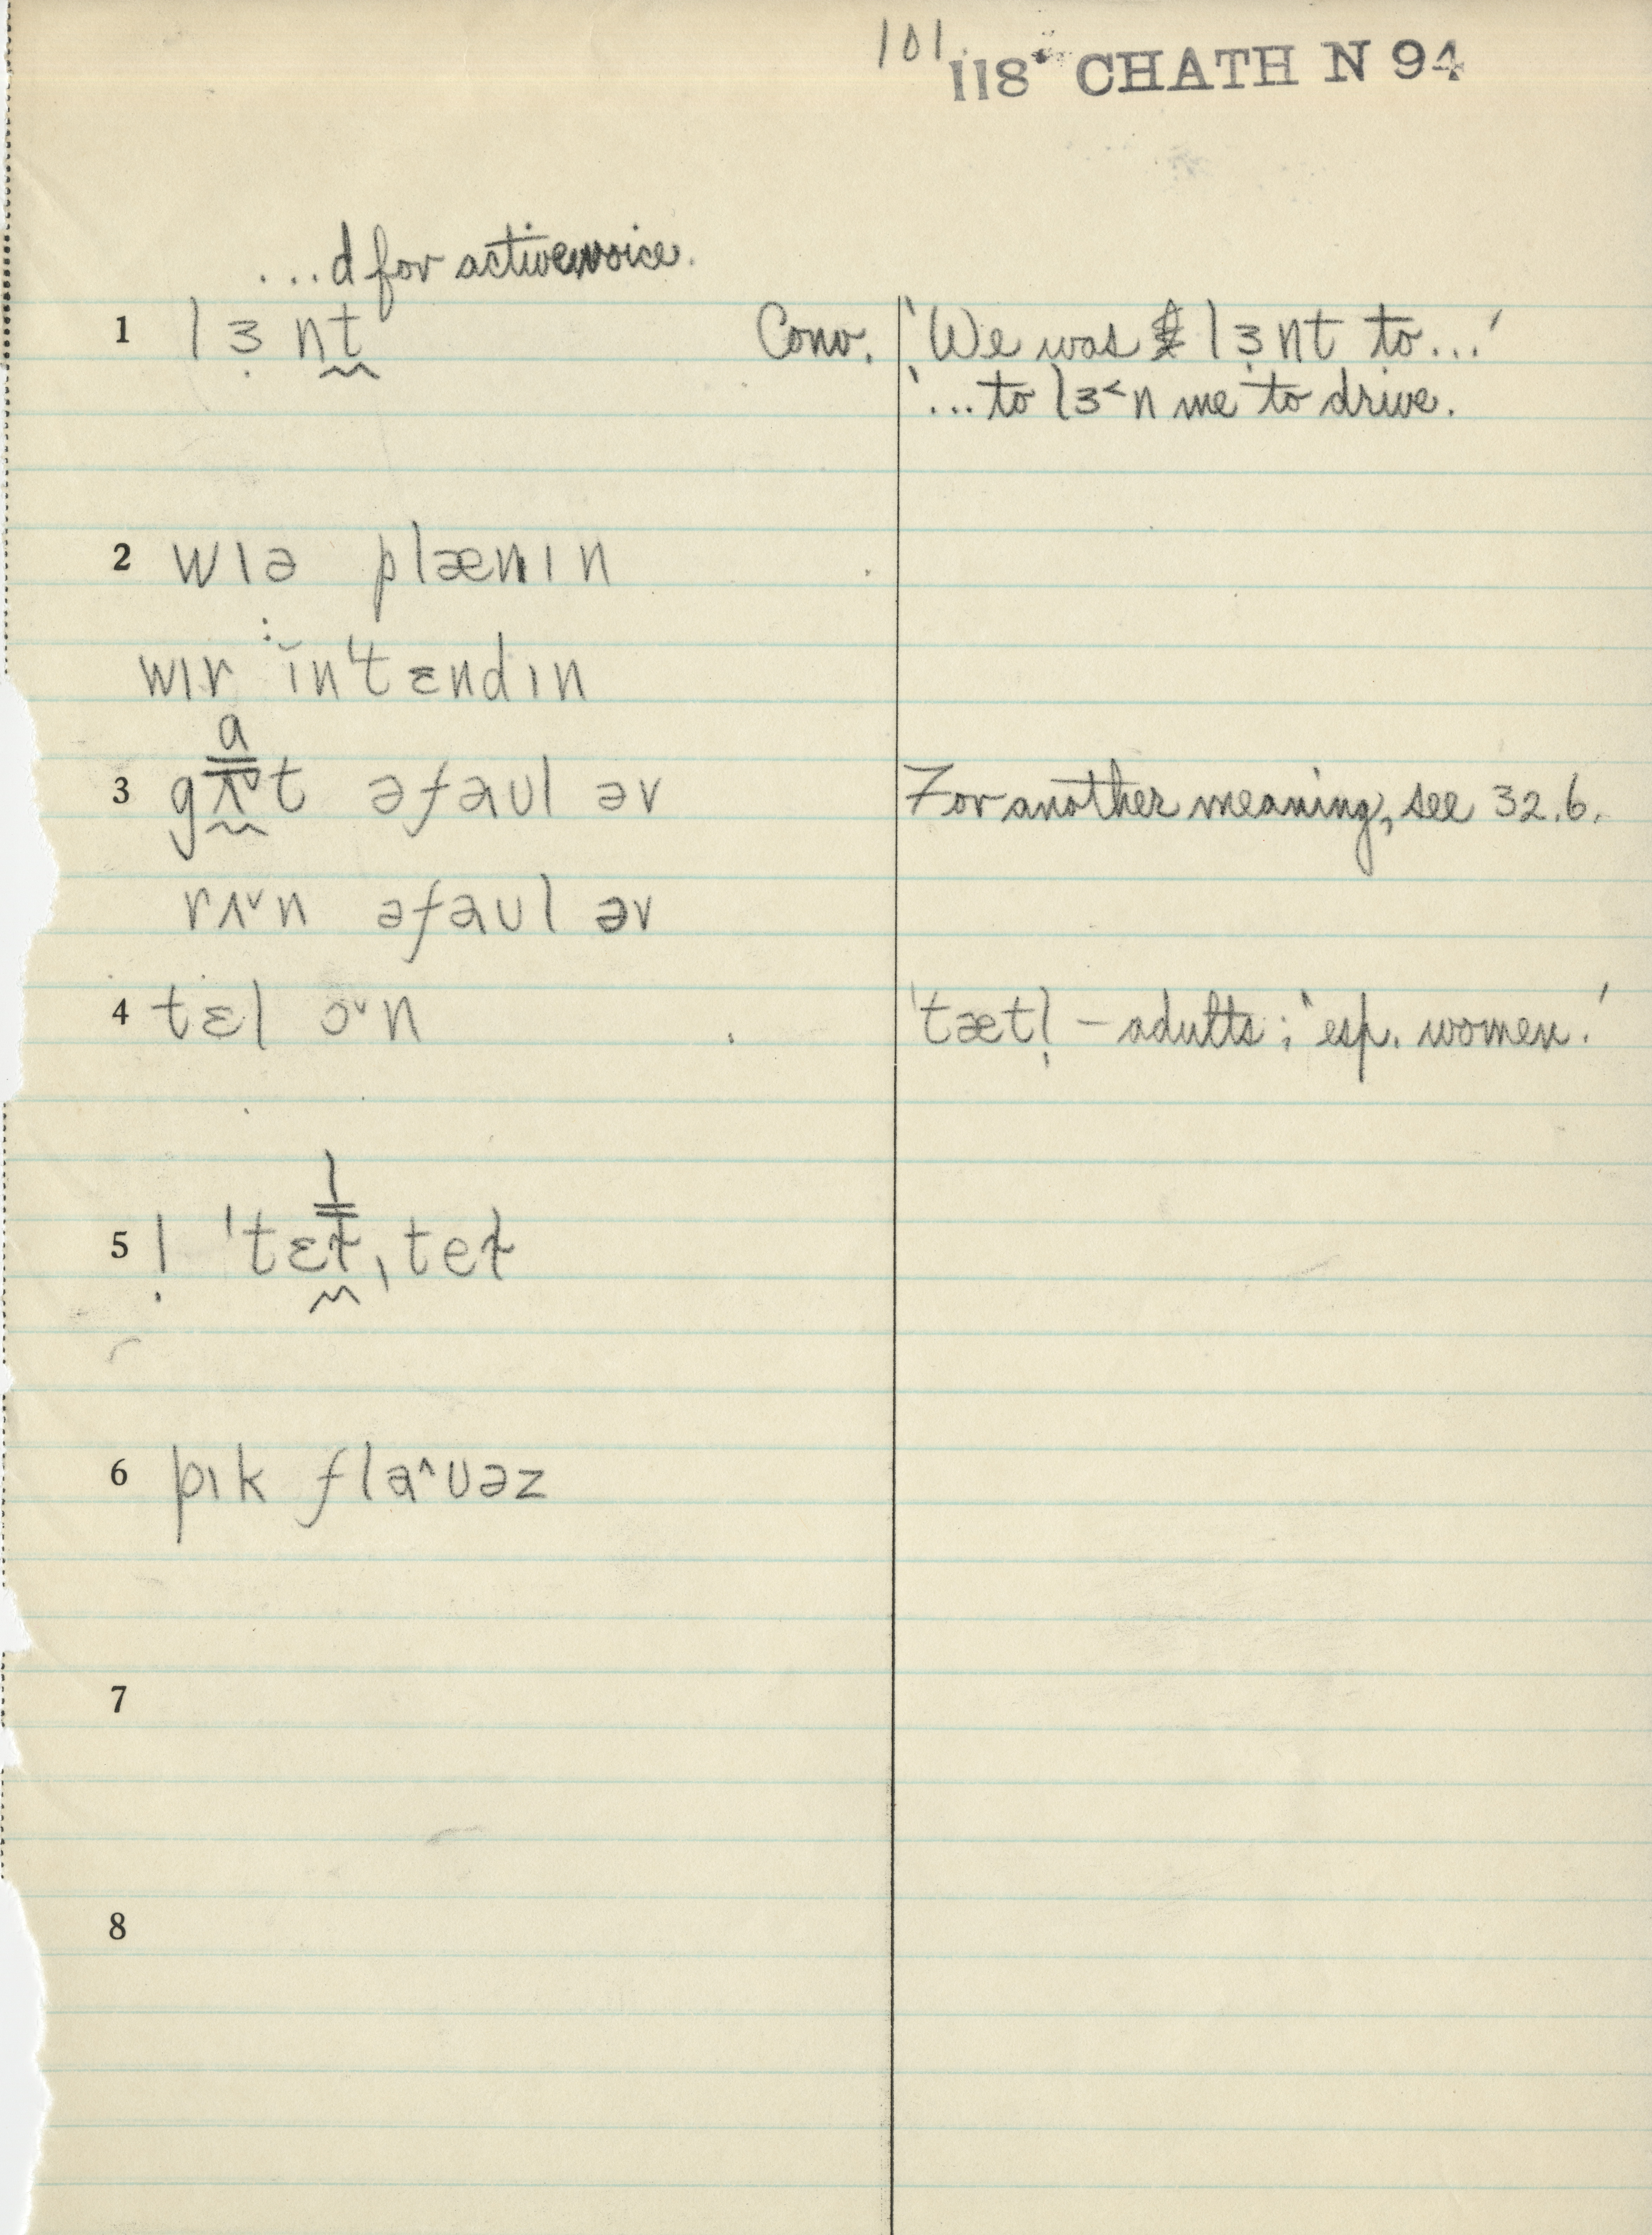 101
118* CHATH N 94
...d for active voice.
1 lɜ̣nt Conv. 'We was lɜ̣nt to...'
'...to lɜ˂n me to drive.
2 wɪə plænɪn
wɪr ĭn'tɛndɪn
a
3 gʌ˅t əfaʊl əv For another meaning, see 32.6.
rʌ˅n əfaʊl əv
4 tɛl ɔ˅n 'tætl̩ – adults; 'esp. women.'
l
5 ! 'tɛɫˌteɫ
6 pɪk flaˆʊəz
7
8